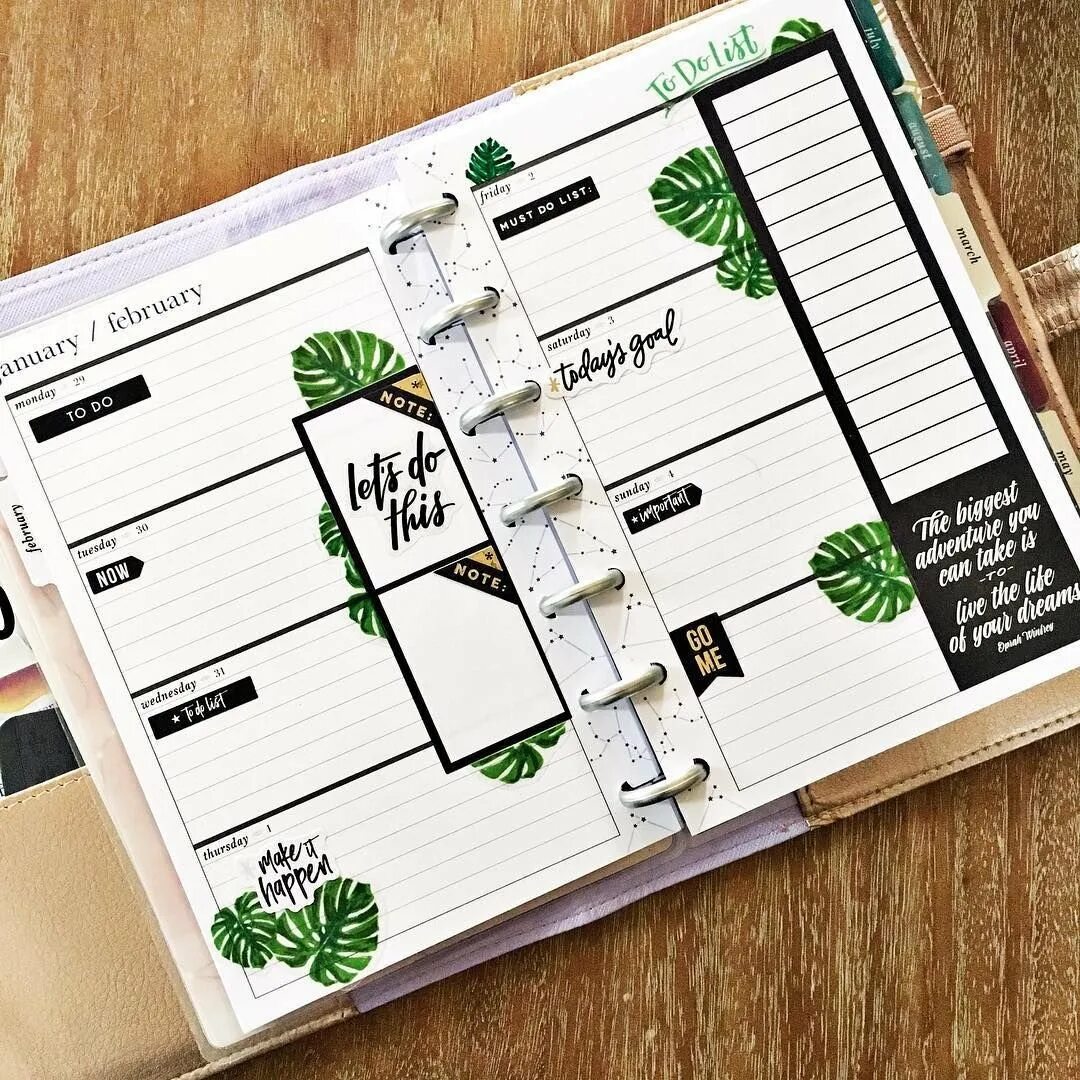 anuary / february
monday 29
TO DO
tuesday 30
NOW
wednesday 31
To do list
thursday 1
make it
happen
NOTE:
let's do
this
NOTE:
february
To Do List
friday 2
MUST DO LIST:
saturday 3
today's goal
sunday 4
important
GO
ME
The biggest
adventure you
can take is
-TO-
live the life
of your dreams
Oprah Winfrey
july
august
march
april
may